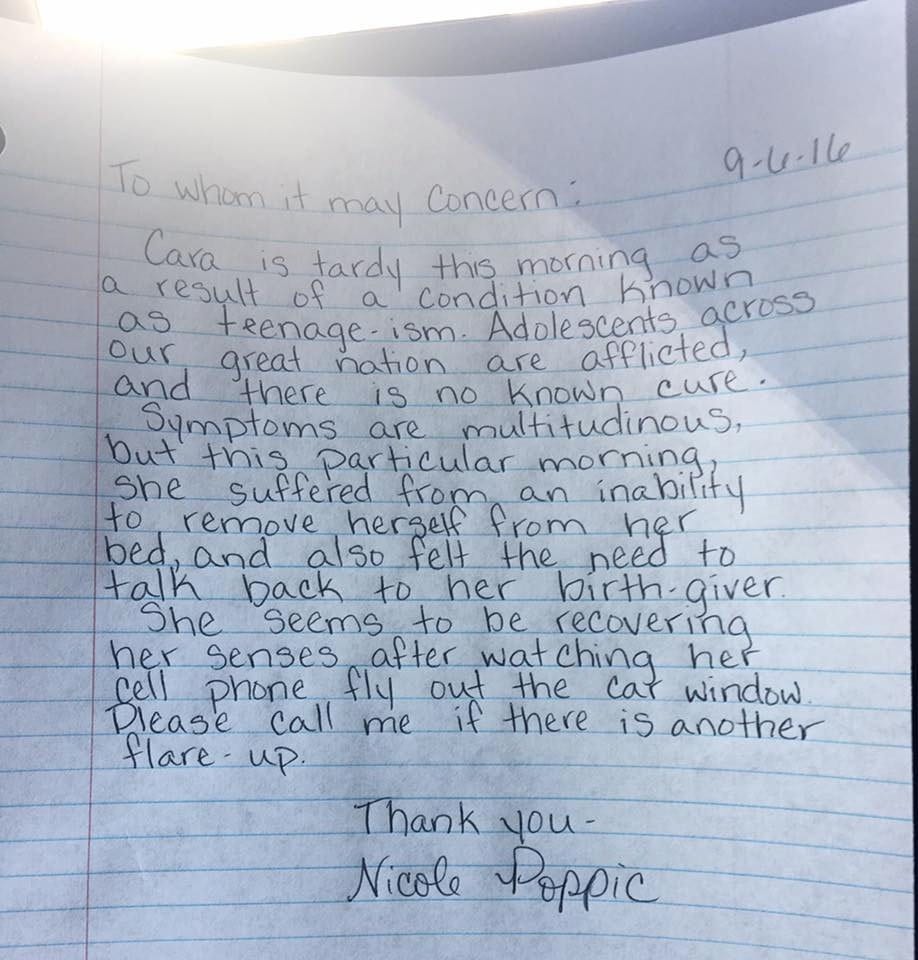 9-6-16
To whom it may Concern:
Cara is tardy this morning as
a result of a condition known
as teenage-ism. Adolescents across
our great nation are afflicted,
and there is no known cure.
Symptoms are multitudinous,
but this particular morning,
she suffered from an inability
to remove herself from her
bed, and also felt the need to
talk back to her birth-giver.
She seems to be recovering
her senses after watching her
cell phone fly out the car window.
Please call me if there is another
flare-up.
Thank you-
Nicole Poppic